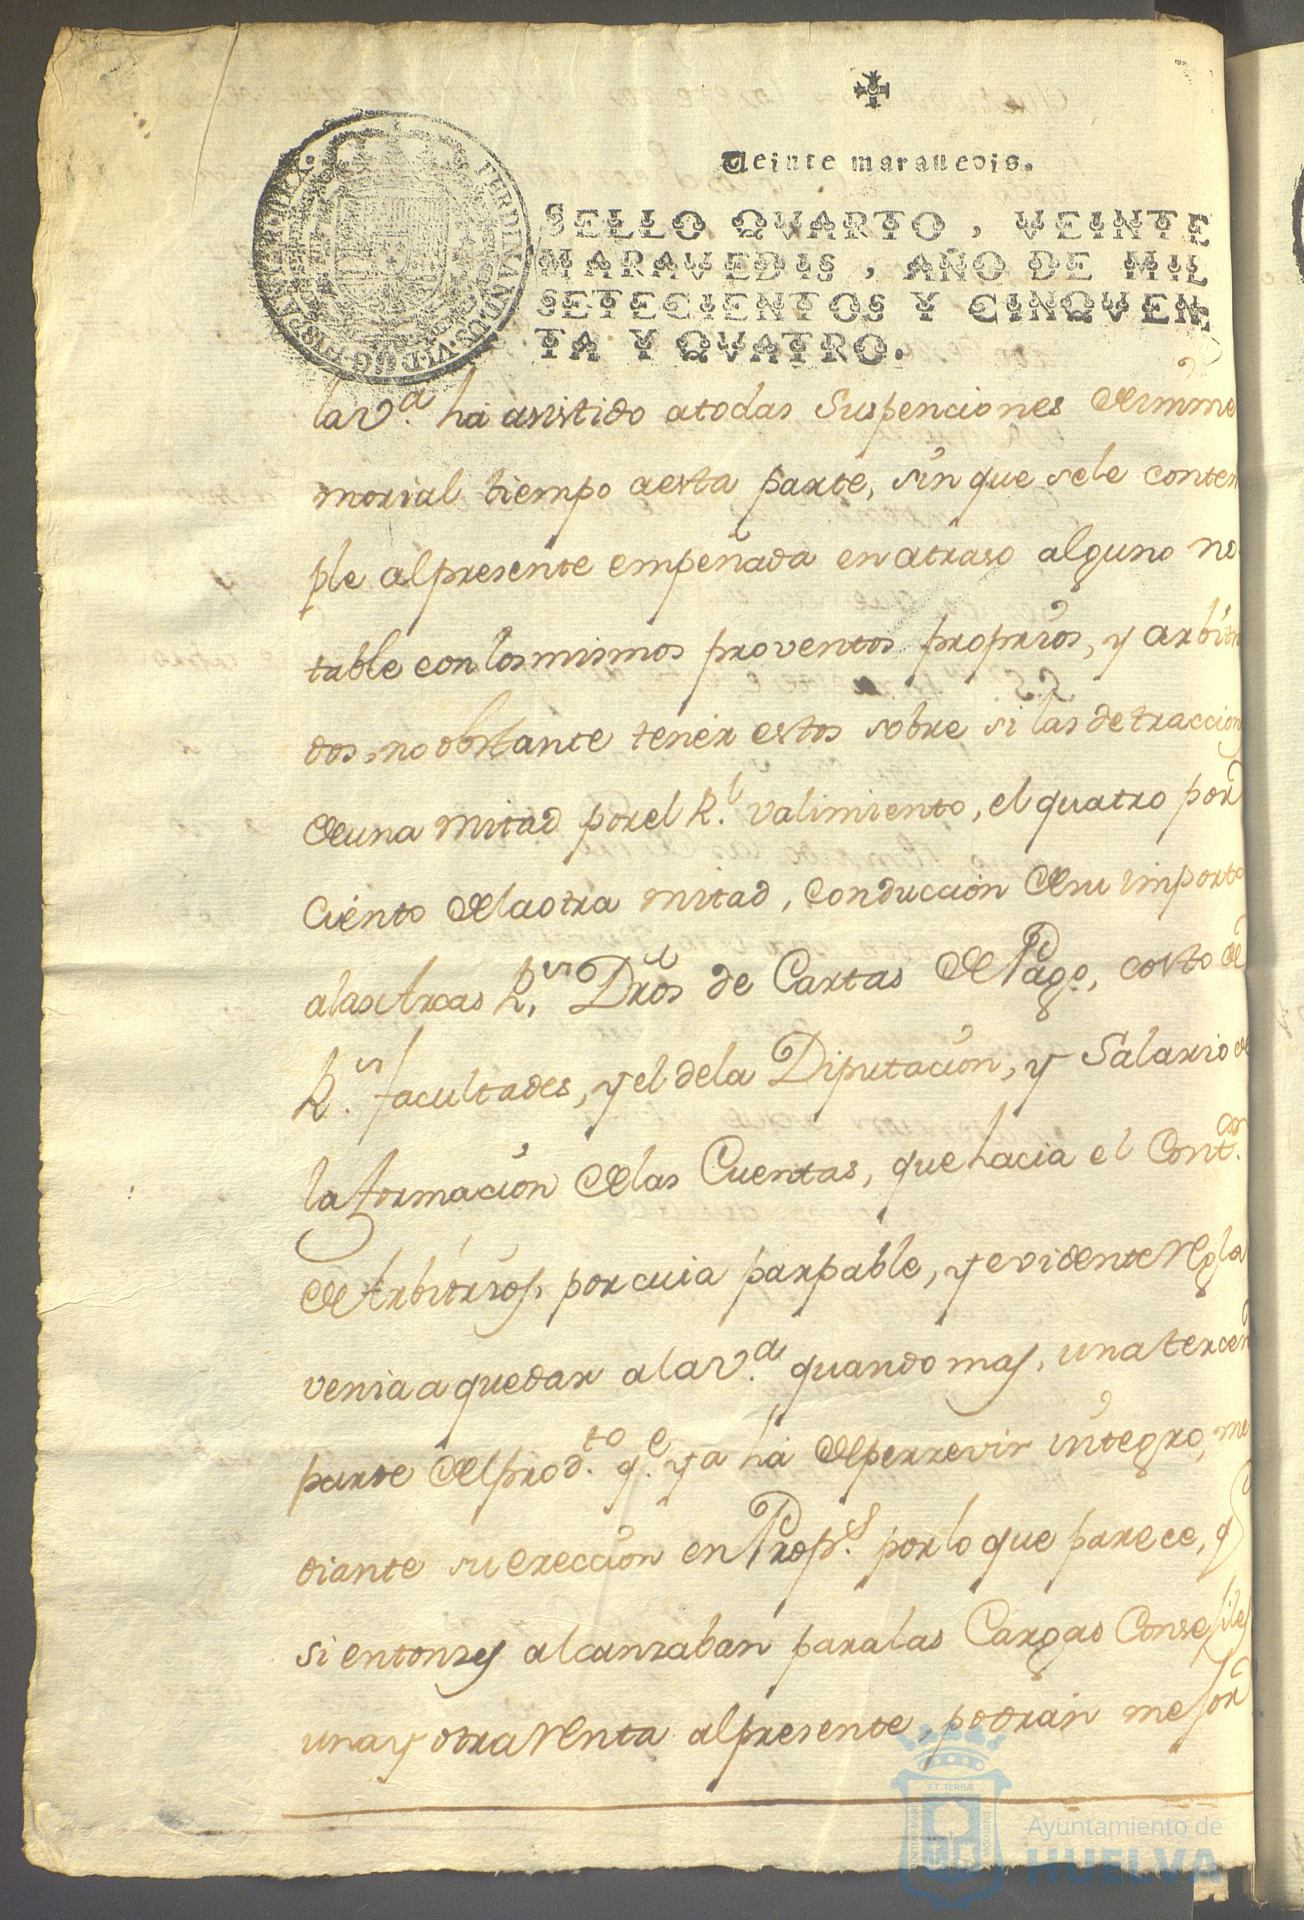 Veinte maravedis.
SELLO QVARTO, VEINTE
MARAVEDIS, AÑO DE MIL
SETECIENTOS Y CINQVEN
TA Y QVATRO.
FERDINANDUS.VI.D.G.HISPANIAR.REX.
la v.ª há asistido a todas Suspenciones de imme
morial tiempo a esta parte, sin que se le contem
ple al presente empeñada en atraso alguno no
table con los mismos proventos proprios, y arbitra
dos, no obstante tener estos sobre si las detraccion
de una mitad por el R.l valimiento, el quatro por
Ciento de la otra mitad, Conducción de su importe
a las Arcas R.s Dros de Cartas de Pago, costo de
R.s facultades, y el de la Diputación, y Salario de
la formación de las Cuentas, que hacia el Cont.or
de Arbitrios, por cuia parpable, y evidente regla
venia a quedar a la v.ª quando mas, una tercera
parte del prod.to q.e ya há de perzevir integro, me
diante su erección en Prop.s por lo que parece, q
si entonzes alcanzaban para las Cargas Consejiles
una y otra renta al presente, podrán mejor
Ayuntamiento de
HUELVA